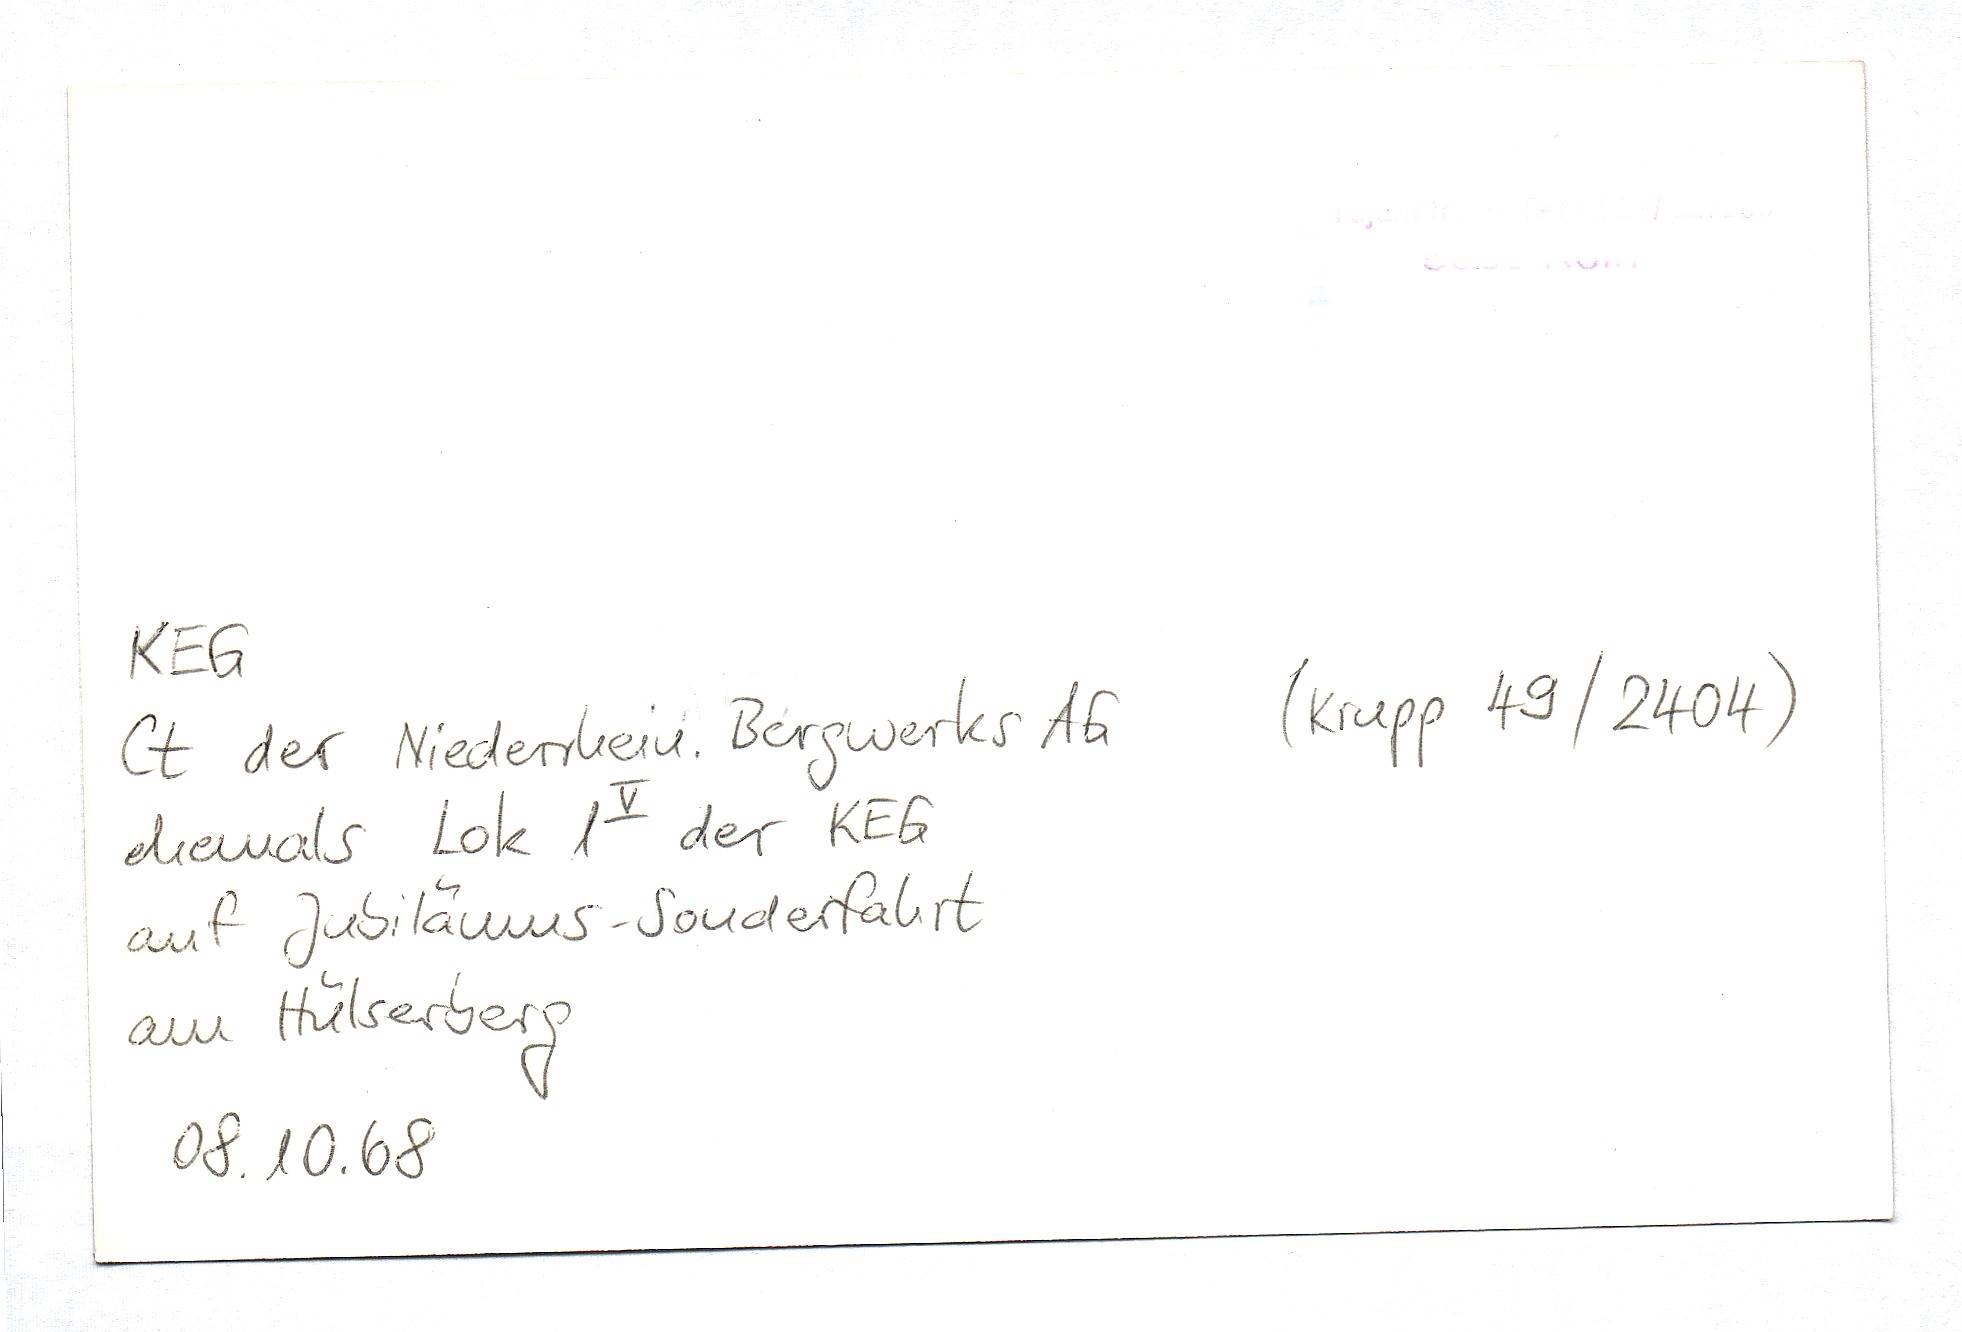 KEG
Ct der Niederrhein. Bergwerks AG (Krupp 49/2404)
ehemals Lok 1^V der KEG
auf Jubiläums-Sonderfahrt
am Hülserberg
08.10.68